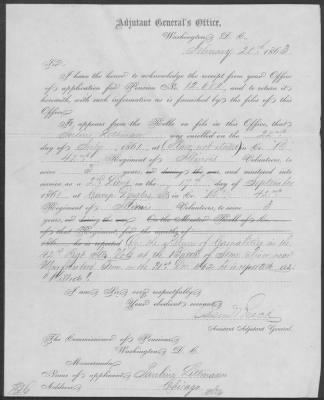 Adjutant General's Office,
Washington, D. C.
February 21st 1863
Sir:
I have the honor to acknowledge the receipt from your Office
of application for Pension No. 12,600, and to return it
herewith, with such information as is furnished by the files of this
Office.
It appears from the Rolls on file in this Office, that
was enrolled on the 22nd
day of July, 1861, at in Co.
42nd Regiment of Illinois Volunteers, to
serve 3 years, and mustered into
service as a 2d Lieut. on the 17th day of September
1861, at Camp Douglas, Ills in Co. 42nd
Regiment of Illinois Volunteers, to serve 3
years, On the Muster Roll of Co.
that Regiment, for the months of
he is reported In the Return of Casualties in the
42nd Regt Ills Vols at the Battle of Stone River near
Murfreesboro Tenn. on the 31st Dec. he is reported as
"Killed".
I am Sir, very respectfully,
Your obedient servant,
Assistant Adjutant General.
The Commissioner of Pensions,
Washington, D. C.
Memoranda:
Name of applicant,
Address, Chicago
Ills